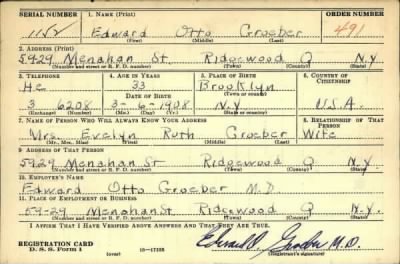 SERIAL NUMBER 1. NAME (Print) ORDER NUMBER
1152 Edward Otto Groeber 491
(First) (Middle) (Last)
2. ADDRESS (Print)
59-29 Menahan St. Ridgewood Q N.Y.
(Number and street or R. F. D. number) (Town) (County) (State)
3. TELEPHONE 4. AGE IN YEARS 5. PLACE OF BIRTH 6. COUNTRY OF CITIZENSHIP
He 33 Brooklyn
DATE OF BIRTH (Town or county)
3 6208 3-6-1908 N.Y U.S.A.
(Exchange) (Number) (Mo.) (Day) (Yr.) (State or country)
7. NAME OF PERSON WHO WILL ALWAYS KNOW YOUR ADDRESS 8. RELATIONSHIP OF THAT PERSON
Mrs. Evelyn Ruth Groeber Wife
(Mr., Mrs., Miss) (First) (Middle) (Last)
9. ADDRESS OF THAT PERSON
59-29 Menahan St Ridgewood Q N.Y.
(Number and street or R. F. D. number) (Town) (County) (State)
10. EMPLOYER'S NAME
Edward Otto Groeber M.D.
11. PLACE OF EMPLOYMENT OR BUSINESS
59-29 Menahan St. Ridgewood Q N.Y.
(Number and street or R. F. D. number) (Town) (County) (State)
I AFFIRM THAT I HAVE VERIFIED ABOVE ANSWERS AND THAT THEY ARE TRUE.
REGISTRATION CARD
D. S. S. Form 1 (over) 16-17105 Edward O. Groeber M.D.
(Registrant's signature)